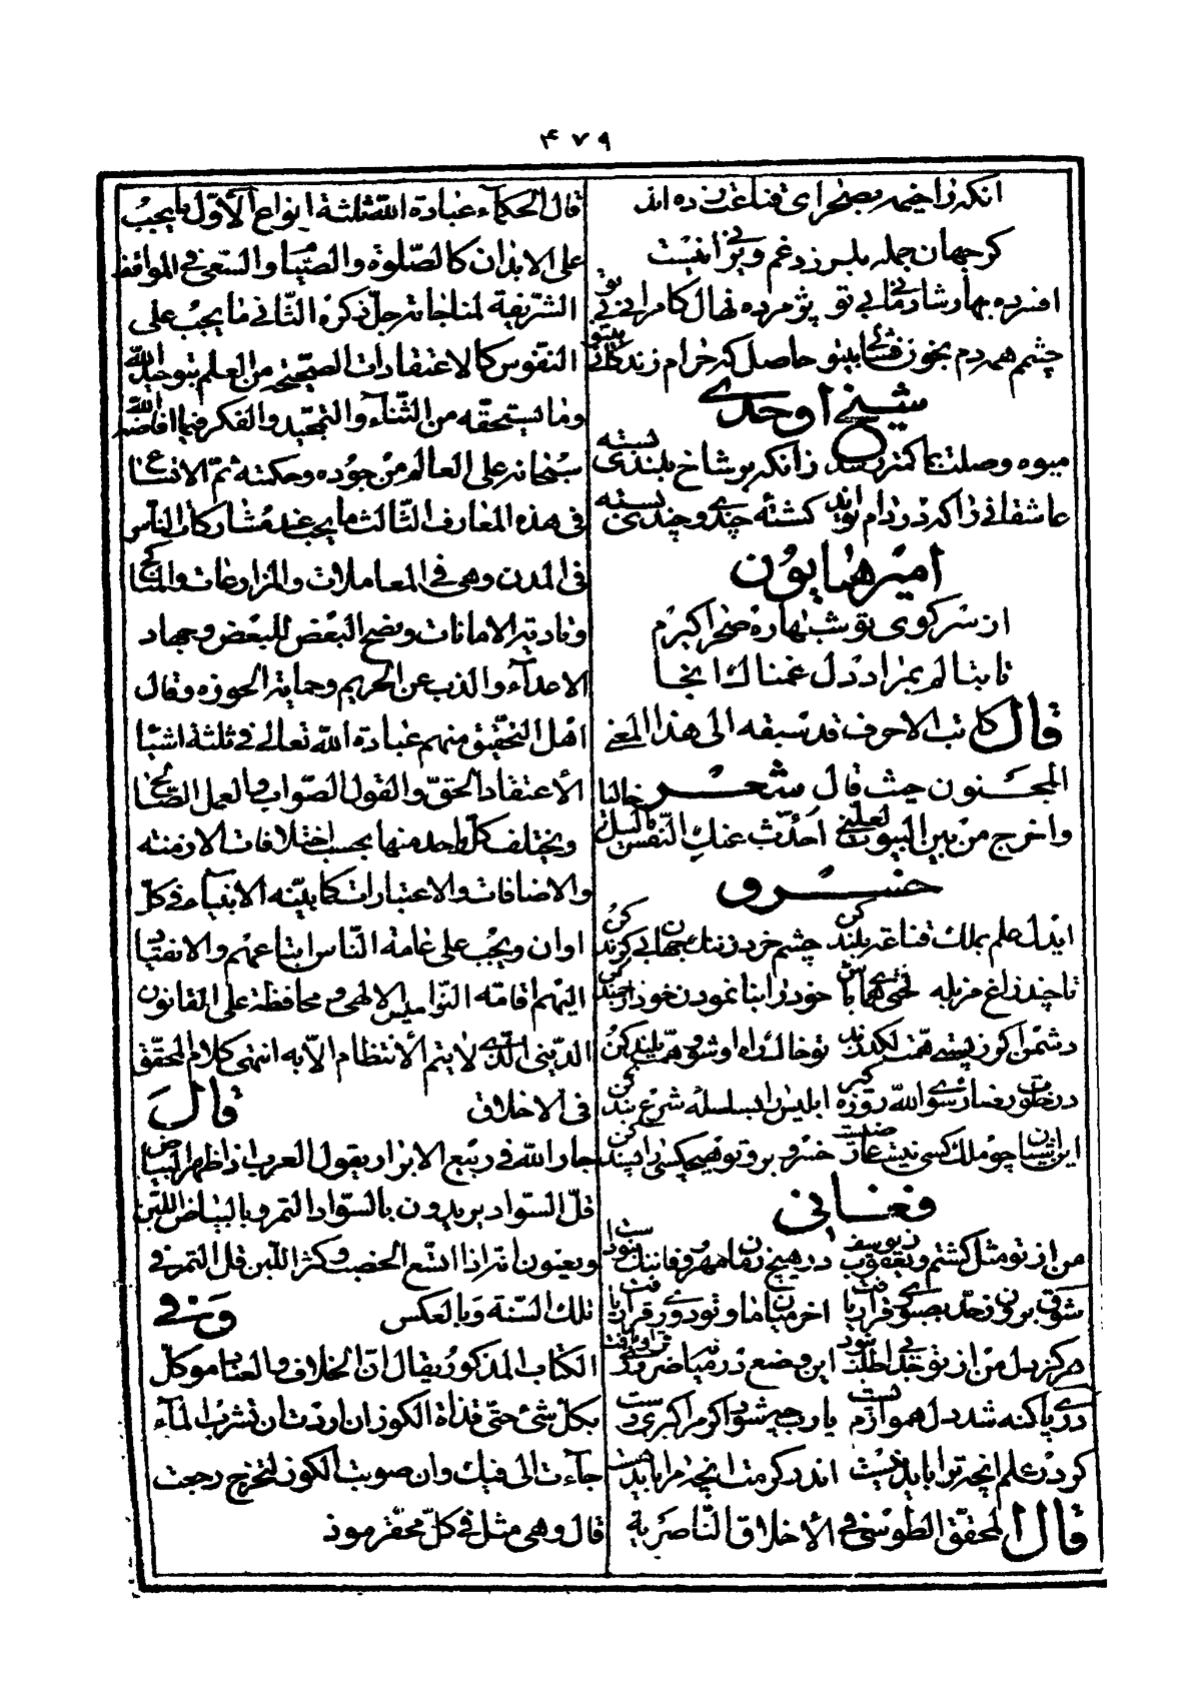 ۴۷۹
آنکه را خیمه بصحرای قناعت زده اند
کر جهان جمله بلرزد غم ویرانی نیست
افسرده بهار شادمانی بی تو پژمرده نهال کامرانی بی تو
چشم همه دم بخون فشانی بیتو حاصل که حرام زندگانی بیتو
شیخ اوحدی
میوه وصلت بما کمتر رسد زانکه بر شاخ بلندی بسته
عاشقانی را که در دام تواند کشته چندی و چندی بسته
امیر همایون
از سر کوی تو شبها ره صحرا گیرم
تا بنالم بمراد دل غمناک آنجا
قال کاتب الاحرف قد سبقه الی هذا المعنی
المجنون حیث قال شعر
واخرج من بین البیوت لعلنی احدّث عنک النفس باللیل خالیا
خسرو
ایدل علم بملک قناعت بلند کن چشم خرد ز ننک جهانی گزند کن
تا چند زاغ مزبله خود را بنا نمودن خود ارجمند کن
تو خاک راه او شو و همّت بلند کن
در ابلیس را بسلسله شرع بند کن
چو ملک کسی نیست خسرو برو تو هیچکسی را پسند کن
فغانی
من از تو مثل گشتم و یعقوب ز یوسف در هیچ زمان مهر و وفا ننک نبوداست
شوق برون ز حد آخر میان ما و تو دوری قرار یافت
هرگز بدل من از تو این وضع در میانه
دریا کنه شد دل یا رب چه شود اگر مرا گیری دست
گر در علمم آنچه ترا باید نیست اندر کرمت آنچه مرا باید هست
قال المحقق الطوسی فی الأخلاق الناصریة
قال الحکماء عبادة الله ثلثة انواع الأوّل ما یجب
علی الابدان کالصلوة والصیام والسعی فی المواقف
الشریفة لمناجاته جلّ ذکره الثانی ما یجب علی
النفوس کالاعتقادات الصحیحة من العلم بتوحید الله
وما یستحقه من الثناء والتمجید والفکر فیما افاضه الله
سبحانه علی العالم من جوده وحکمته ثم الاتساع
فی هذه المعارف الثالث ما یجب عند مشارکات الناس
فی المدن وهی فی المعاملات والمزارعات والمناکح
وتادیة الامانات ونصح البعض للبعض وجهاد
الاعداء والذب عن الحریم وحمایة الحوزه وقال
اهل التحقیق منهم عبادة الله تعالی فی ثلثة اشیاء
الأعتقاد الحقّ والقول الصواب والعمل الصالح
ویختلف کلّ واحد منها بحسب اختلافات الازمنه
والاضافات والاعتبارات کما بینه الانبیاء فی کلّ
اوان ویجب علی عامة الناس اتباعهم والانقیاد
الیهم اقامة النوامیس الالهی ومحافظة علی القانون
الدینی الذی لا یتم الأنتظام الّا به انتهی کلام المحقق
فی الاخلاق قال
جار الله فی ربیع الابرار یقول العرب اذا ظهر البیاض
قلّ السواد یریدون بالسواد التمر وبالبیاض اللبن
ویعنون انه اذا اتسع الخصب وکثر اللبن قل التمر فی
تلک السنة وبالعکس وفی
الکتاب المذکور یقال ان الخلاف والعناد موکل
بکلّ شئ حتی قذاة الکوز ان اردت ان تشرب الماء
جاءت الی فیک وان صوبت الکوز لتخرج رجعت
قال وهی مثل فی کلّ محقر موذ